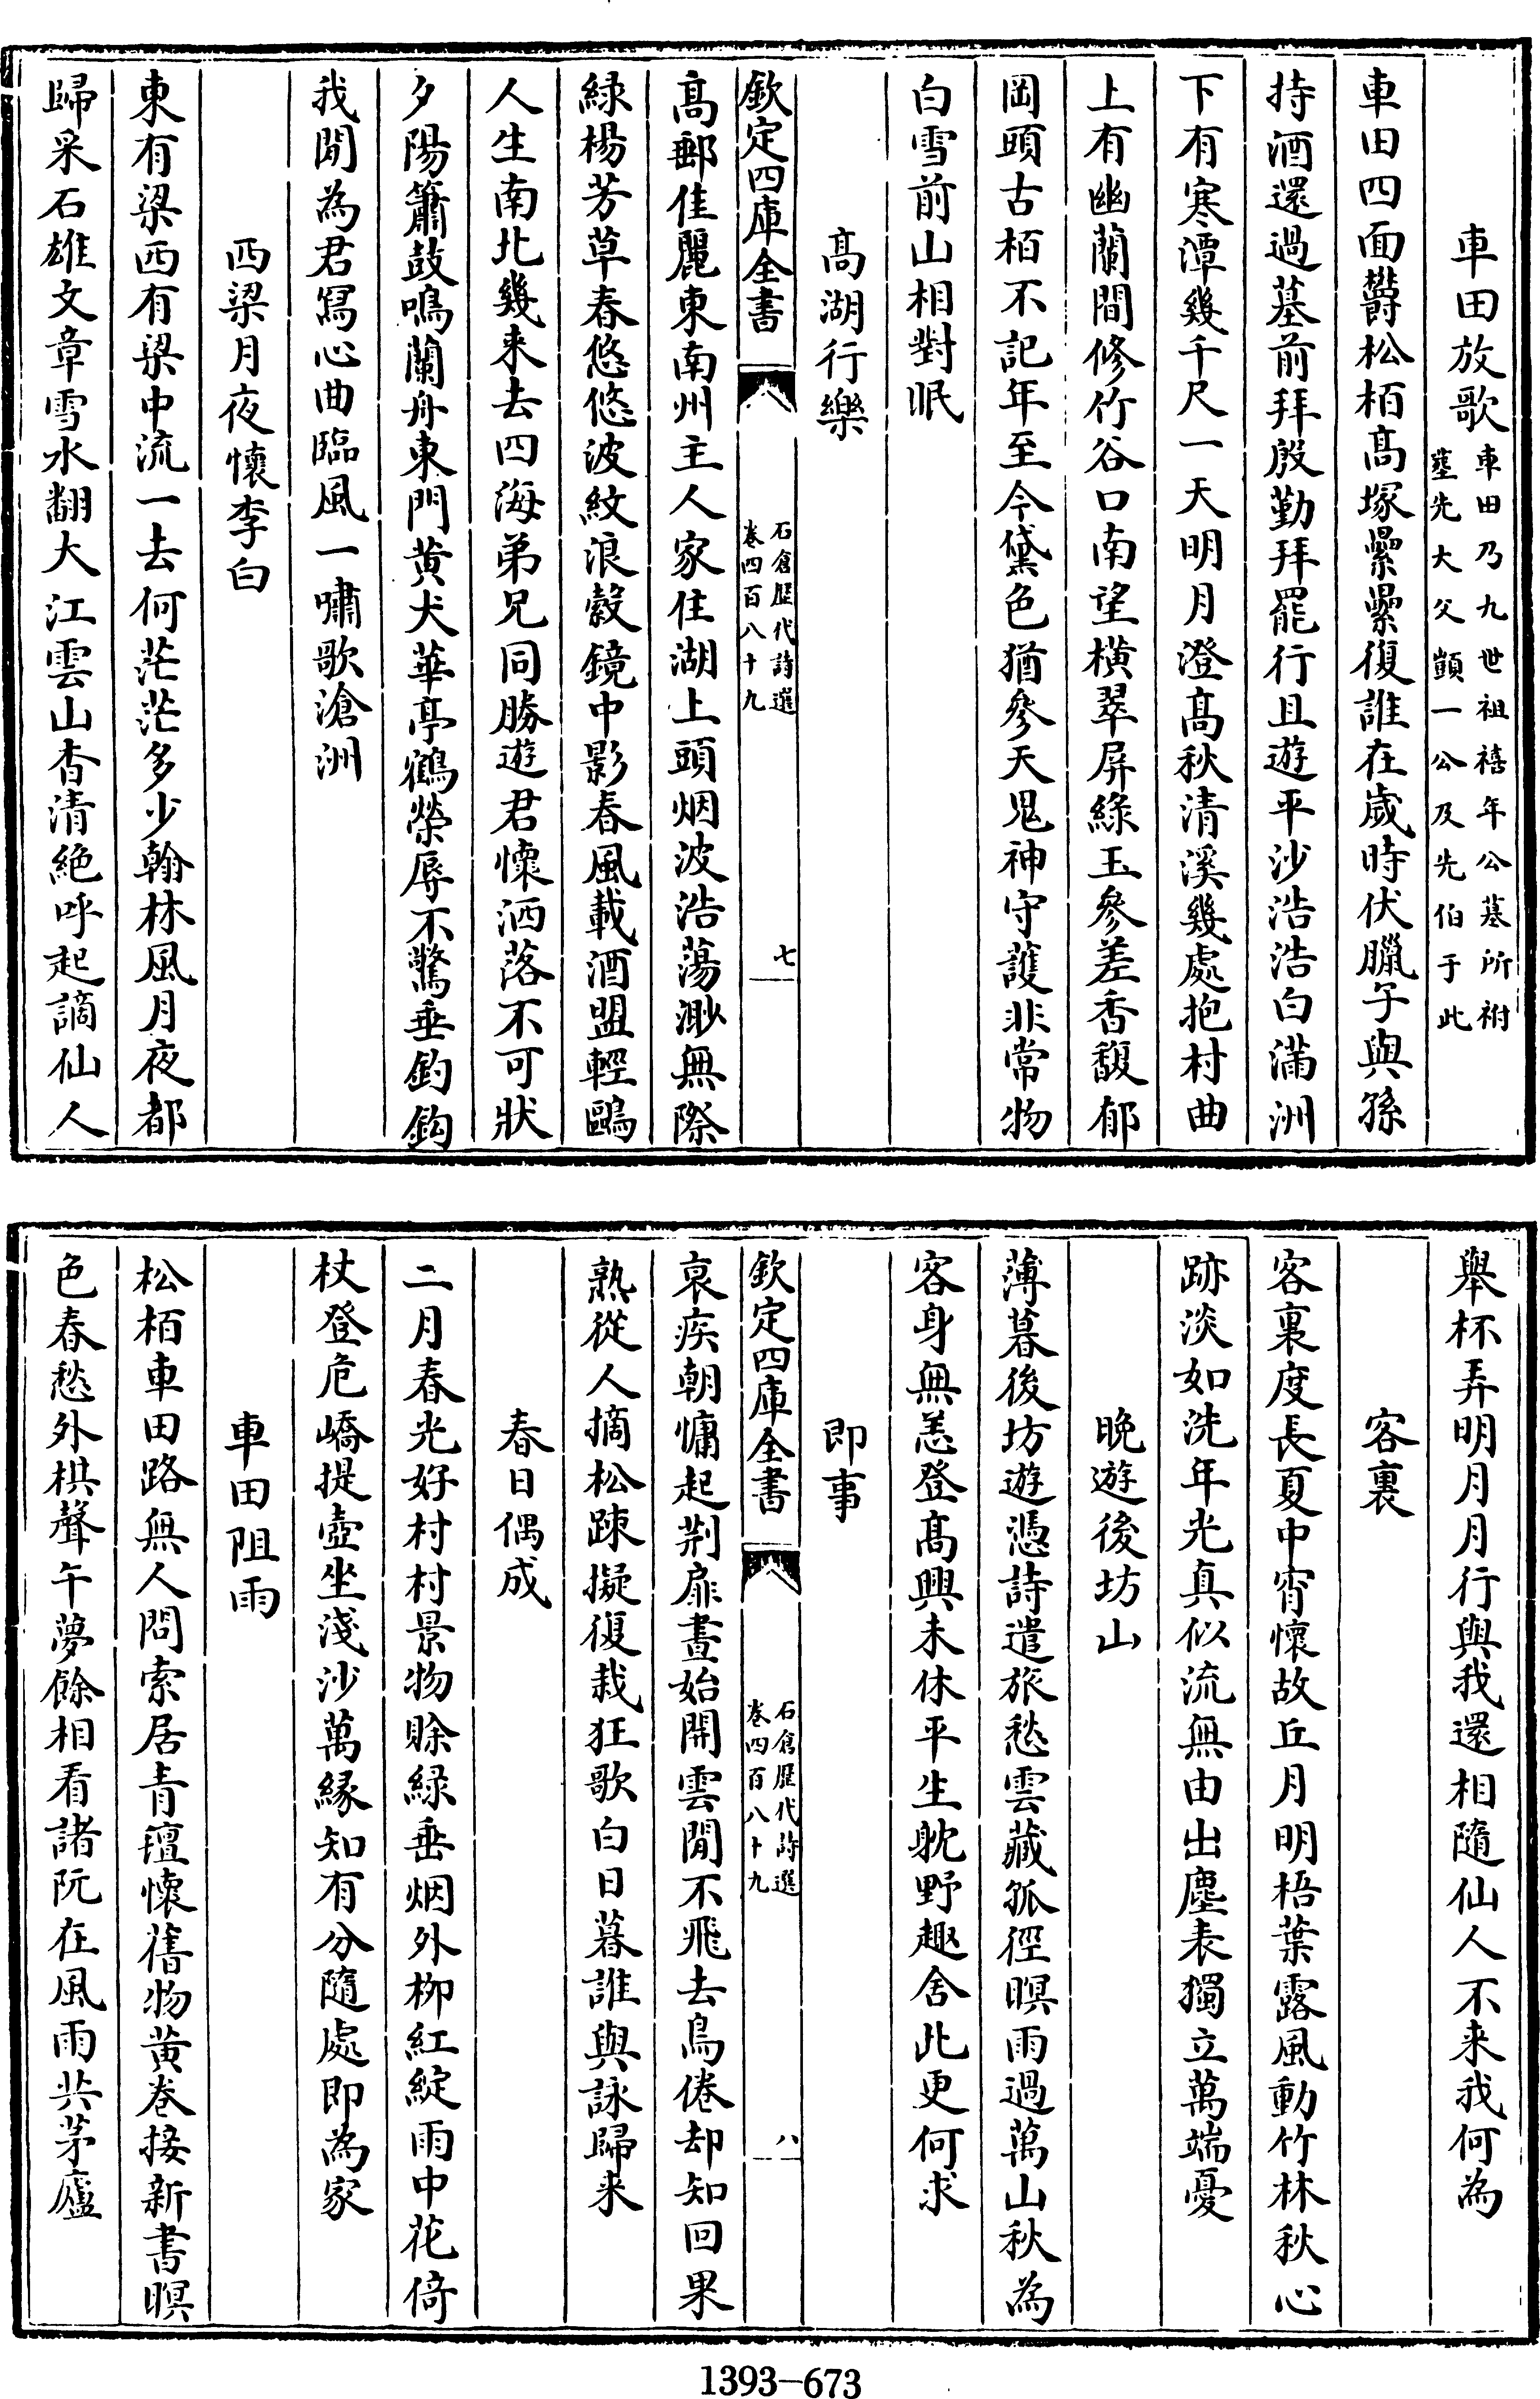 車田放歌車田乃九世祖禧年公墓所祔
塟先大父顗一公及先伯于此
車田四面欝松栢高塚纍纍復誰在歲時伏臘子與孫
持酒還過墓前拜殷勤拜罷行且遊平沙浩浩白滿洲
下有寒潭幾千尺一天明月澄高秋清溪幾處抱村曲
上有幽蘭間修竹谷口南望橫翠屏綠玉參差香馥郁
岡頭古栢不記年至今黛色猶參天鬼神守護非常物
白雪前山相對眠
高湖行樂
欽定四庫全書
石倉歷代詩選
卷四百八十九
七
高郵佳麗東南州主人家住湖上頭烟波浩蕩渺無際
綠楊芳草春悠悠波紋浪縠鏡中影春風載酒盟輕鷗
人生南北幾來去四海弟兄同勝遊君懷洒落不可狀
夕陽簫鼓鳴蘭舟東門黃犬華亭鶴榮辱不驚垂釣鈎
我聞為君寫心曲臨風一嘯歌滄洲
西梁月夜懷李白
東有梁西有梁中流一去何茫茫多少翰林風月夜都
歸采石雄文章雪水翻大江雲山杳清絕呼起謫仙人
舉杯弄明月月行與我還相隨仙人不来我何為
客裏
客裏度長夏中宵懷故丘月明梧葉露風動竹林秋心
跡淡如洗年光真似流無由出塵表獨立萬端憂
晚遊後坊山
薄暮後坊遊憑詩遣旅愁雲藏孤徑暝雨過萬山秋為
客身無恙登高興未休平生躭野趣舍此更何求
即事
欽定四庫全書
石倉歷代詩選
卷四百八十九
八
衰疾朝慵起荆扉晝始開雲閒不飛去鳥倦却知回果
熟從人摘松踈擬復栽狂歌白日暮誰與詠歸来
春日偶成
二月春光好村村景物賒綠垂烟外柳紅綻雨中花倚
杖登危嶠提壺坐淺沙萬緣知有分隨處即為家
車田阻雨
松栢車田路無人問索居青氊懷舊物黃卷接新書暝
色春愁外棋聲午夢餘相看諸阮在風雨共茅廬
1393—673